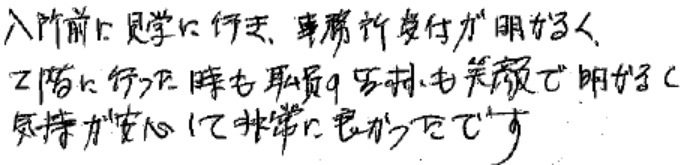 入所前に見学に行き、事務所受付が明かるく、
2階に行った時も職員の方対も笑顔で明かるく
気持が安心して非常に良かったです